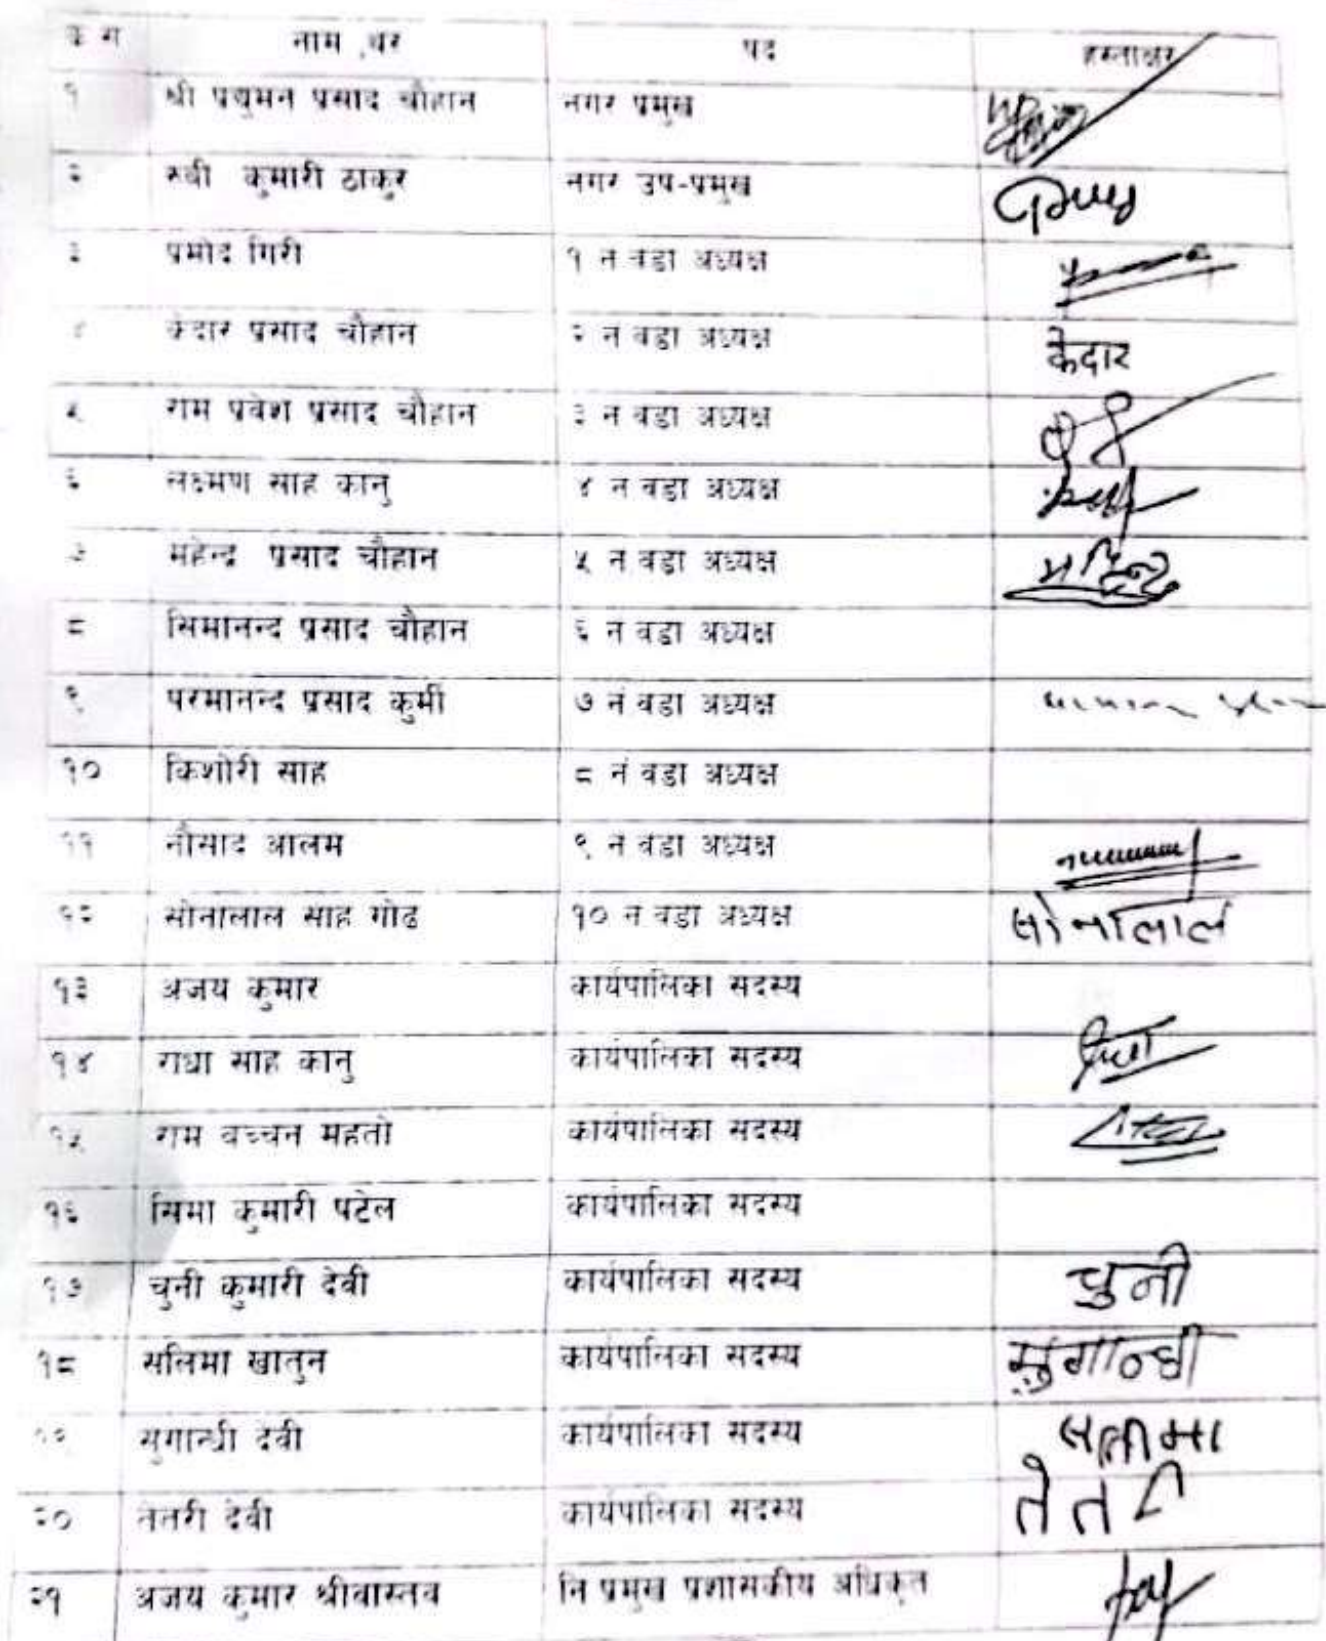 क्र स नाम ,थर पद हस्ताक्षर
१ श्री प्रद्युमन प्रसाद चौहान नगर प्रमुख
२ रुबी कुमारी ठाकुर नगर उप-प्रमुख
३ प्रमोद गिरी १ नं वडा अध्यक्ष
४ केदार प्रसाद चौहान २ नं वडा अध्यक्ष केदार
५ राम प्रवेश प्रसाद चौहान ३ नं वडा अध्यक्ष
६ लक्ष्मण साह कानु ४ नं वडा अध्यक्ष
७ महेन्द्र प्रसाद चौहान ५ नं वडा अध्यक्ष
८ सिमानन्द प्रसाद चौहान ६ नं वडा अध्यक्ष
९ परमानन्द प्रसाद कुर्मी ७ नं वडा अध्यक्ष
१० किशोरी साह ८ नं वडा अध्यक्ष
११ नौसाद आलम ९ नं वडा अध्यक्ष
१२ सोनालाल साह गोढ १० नं वडा अध्यक्ष सोनालाल
१३ अजय कुमार कार्यपालिका सदस्य
१४ राधा साह कानु कार्यपालिका सदस्य
१५ राम बच्चन महतो कार्यपालिका सदस्य
१६ सिमा कुमारी पटेल कार्यपालिका सदस्य
१७ चुनी कुमारी देवी कार्यपालिका सदस्य चुनी
१८ सलिमा खातुन कार्यपालिका सदस्य सुगान्धी
१९ सुगान्धी देवी कार्यपालिका सदस्य सलीमा
२० तेतरी देवी कार्यपालिका सदस्य तेतरी
२१ अजय कुमार श्रीवास्तव नि प्रमुख प्रशासकीय अधिकृत